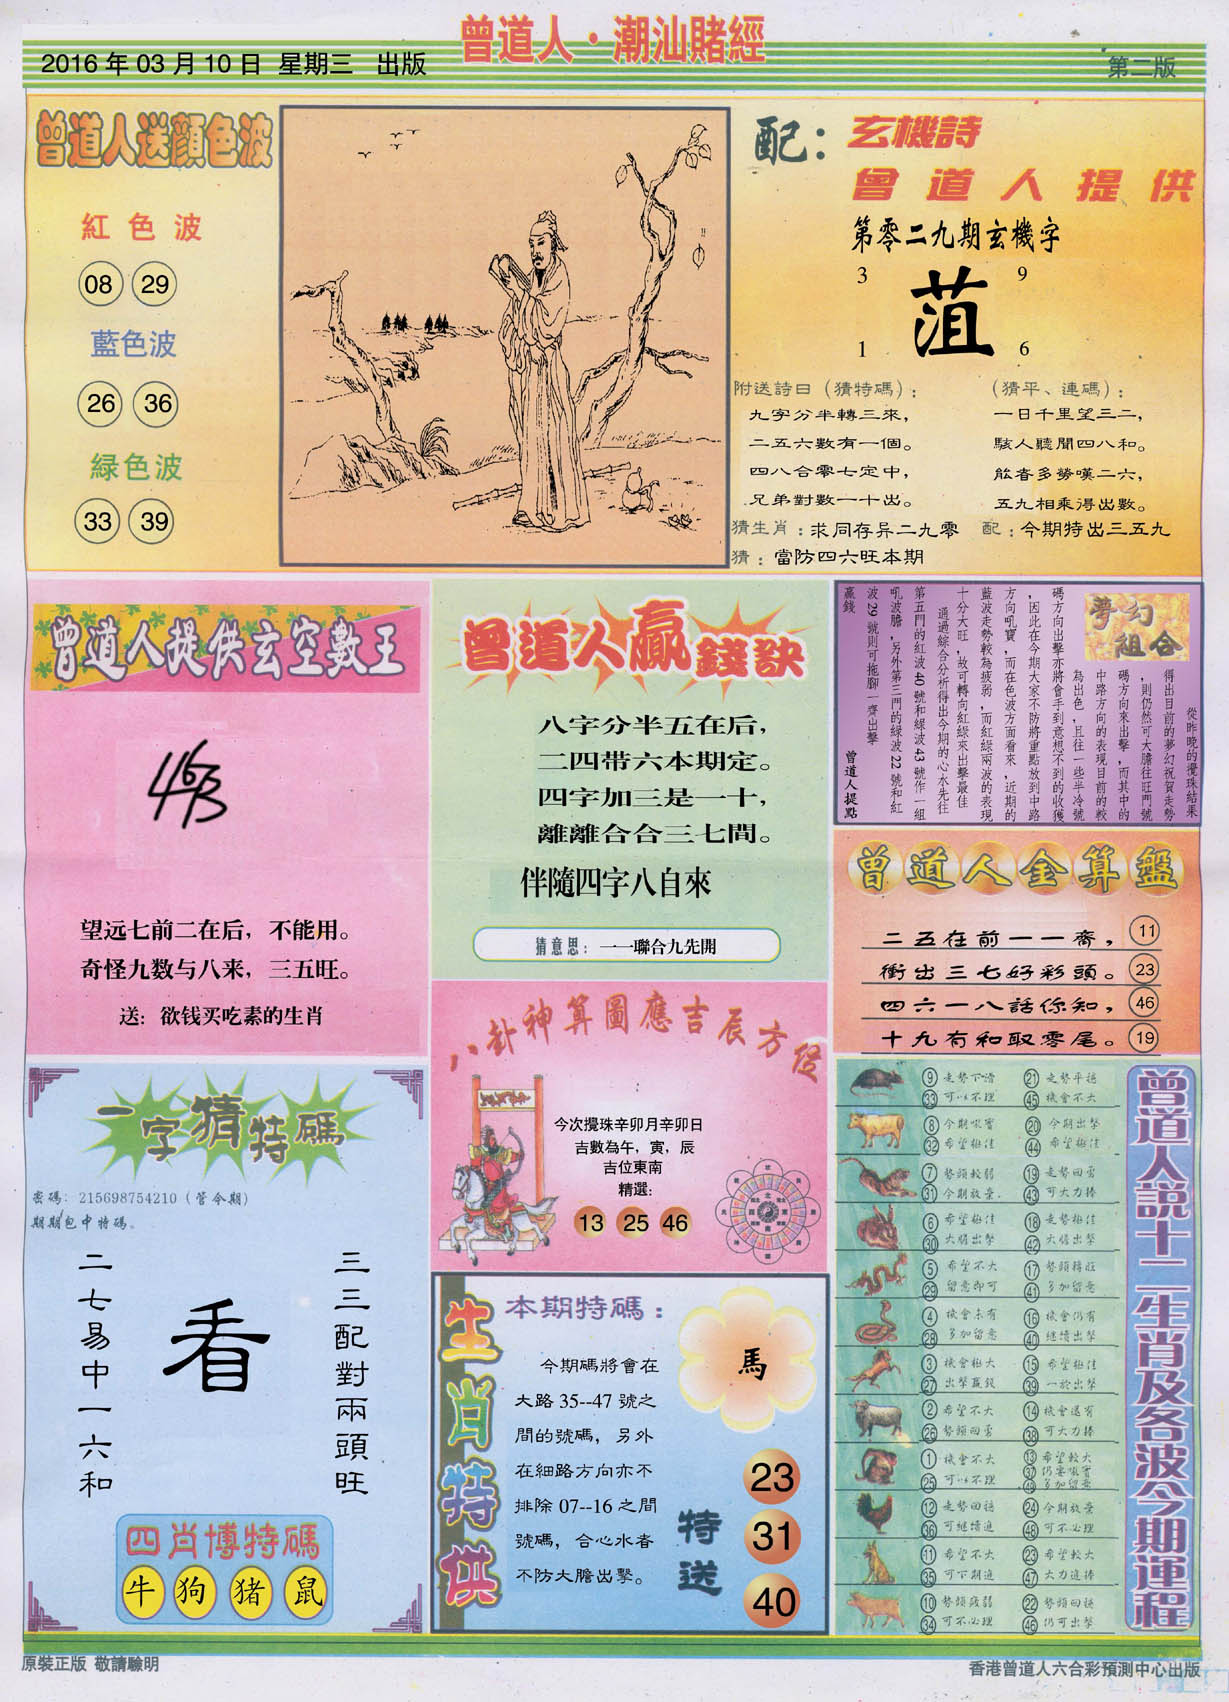 曾道人·潮汕賭經
2016年03月10日 星期三 出版
第二版
曾道人送顏色波
紅色波
08 29
藍色波
26 36
緑色波
33 39
配：玄機詩
曾道人提供
第零二九期玄機字
3 9
菹
1 6
附送詩曰（猜特碼）：
九字分半轉三來，
二五六數有一個。
四八合零七定中，
兄弟對數一十出。
（猜平、連碼）：
一日千里望三二，
駭人聽聞四八和。
能者多勞嘆二六，
五九相乘得出數。
猜生肖：求同存异二九零
配：今期特出三五九
猜：當防四六旺本期
曾道人提供玄空數王
463
望远七前二在后，不能用。
奇怪九数与八来，三五旺。
送：欲钱买吃素的生肖
曾道人贏錢訣
八字分半五在后，
二四带六本期定。
四字加三是一十，
離離合合三七間。
伴隨四字八自來
猜意思：一一聯合九先開
夢幻組合
從昨晚的攪珠結果
得出目前的夢幻祝賀走勢
，則仍然可大膽往旺門號
碼方向來出擊，而其中的
中路方向的表現目前的較
為出色，且往一些半冷號
碼方向出擊亦將會手到意想不到的收獲
，因此在今期大家不防將重點放到中路
方向吼寶，而在色波方面看來，近期的
藍波走勢較為疲弱，而紅綠兩波的表現
十分大旺，故可轉向紅綠來出擊最佳
通過綜合分析得出今期的心水先往
第五門的紅波40號和綠波43號作一組
吼波膽，另外第三門的綠波22號和紅
波29號則可拖腳一齊出擊
贏錢
曾道人提點
曾道人金算盤
二五在前一一齋， 11
衝出三七好彩頭。 23
四六一八話你知， 46
十九有和取零尾。 19
八卦神算圖應吉辰方位
今次攪珠辛卯月辛卯日
吉數為午，寅，辰
吉位東南
精選：
13 25 46
一字猜特碼
密碼：215698754210（管今期）
期期包中特碼。
三三配對兩頭旺
看
二七易中一六和
四肖博特碼
牛 狗 猪 鼠
生肖特供
本期特碼：
馬
今期碼將會在
大路35--47號之
間的號碼，另外
在細路方向亦不
排除07--16之間
號碼，合心水者
不防大膽出擊。
特送
23
31
40
曾道人説十二生肖及各波今期運程
9 走勢下滑 21 走勢平穩
33 可以不理 45 機會不大
8 今期吼寶 20 今期出擊
32 希望極佳 44 希望極佳
7 勢頭較弱 19 走勢回勇
31 今期放棄 43 可大力捧
6 希望極佳 18 走勢極佳
30 大膽出擊 42 大膽出擊
5 希望不大 17 勢頭轉旺
29 留意即可 41 多加留意
4 機會未有 16 機會仍有
28 多加留意 40 繼續出擊
3 機會極大 15 希望極佳
27 出擊贏錢 39 一於出擊
2 希望不大 14 機會還有
26 勢頭回勇 38 可大力捧
1 機會不大 13 希望較大
25 可以不理 37 仍要吼寶
49 多加留意
12 走勢回穩 24 今期放棄
36 可繼續追 48 可不必理
11 希望不大 23 希望較大
35 可下期追 47 大力追捧
10 勢頭疲弱 22 勢頭回穩
34 可不必理 46 仍可出擊
原裝正版 敬請驗明
香港曾道人六合彩預測中心出版